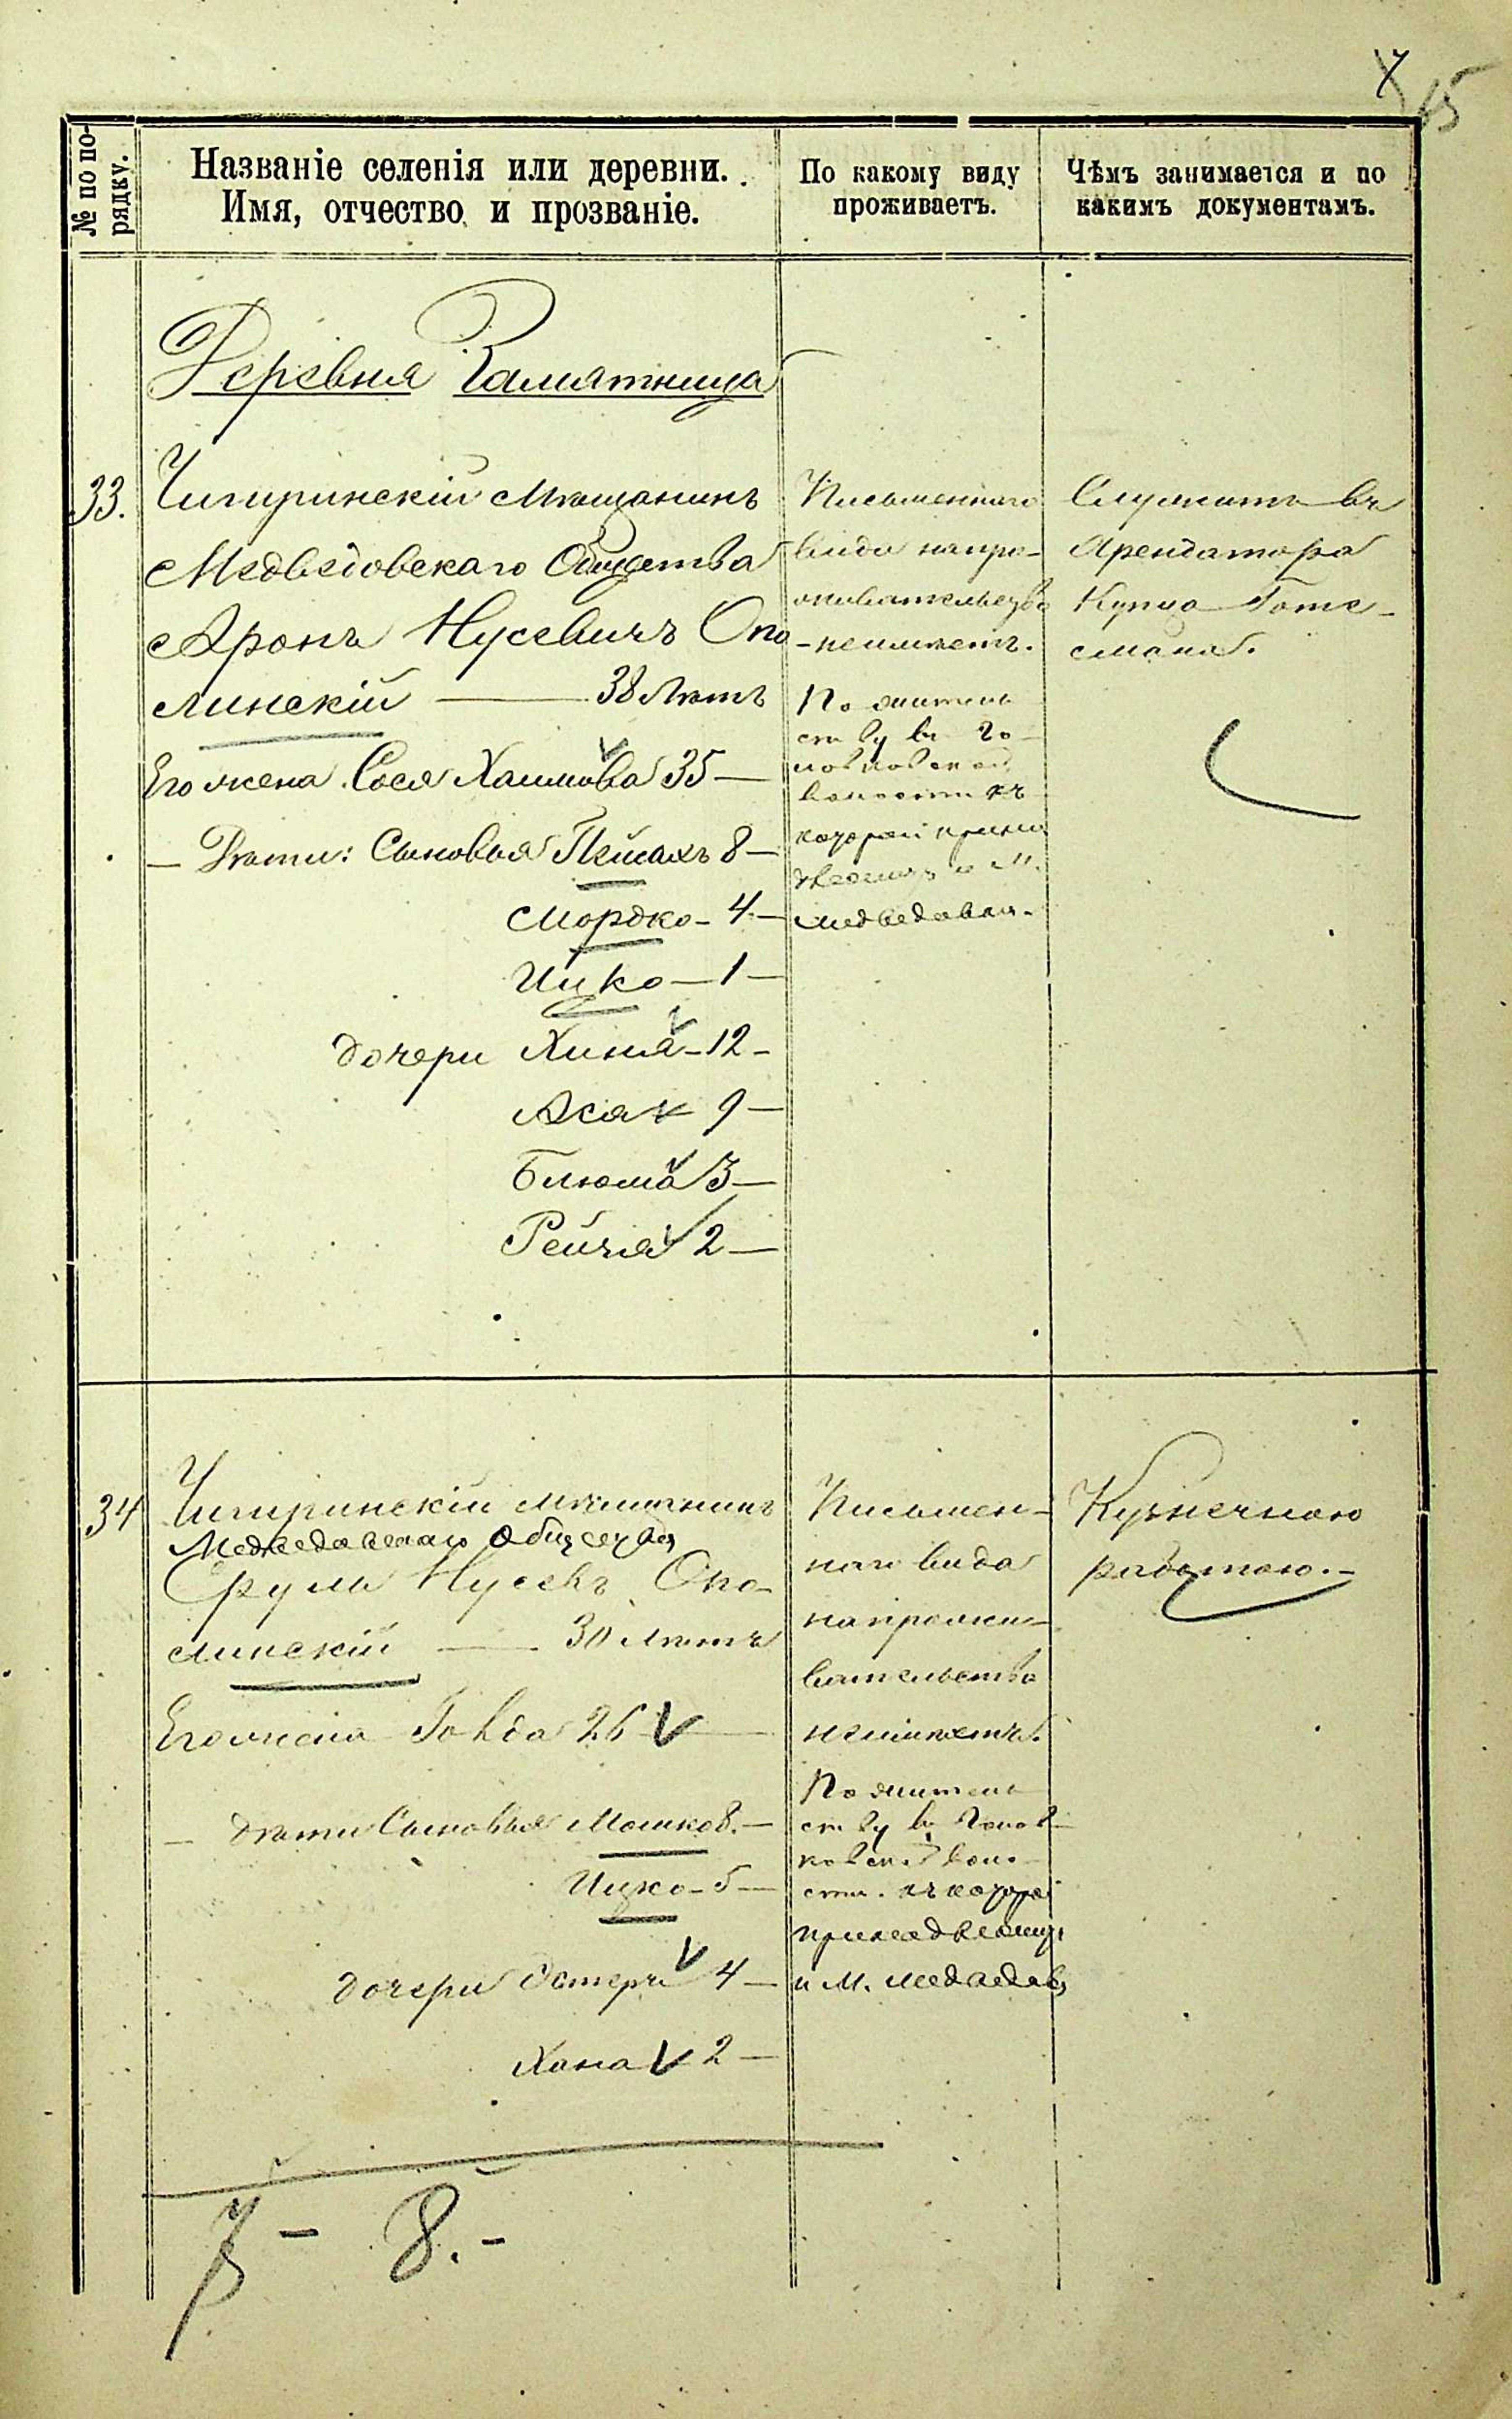 7
15
№ по по-
рядку.
Названіе селенія или деревни.
Имя, отчество и прозваніе.
По какому виду
проживаетъ.
Чѣмъ занимается и по
какимъ документамъ.
Деревня Замятница
33.
Чигиринскій Мѣщанинъ
Медведовскаго Общества
Аронъ Нусевичъ Опо
линскій — 38 Лѣтъ
Его жена Сося Хаимова 35 —
— Дѣти: Сыновья Пейсахъ 8 —
Мордко - 4 —
Ицко — 1 —
дочери Хиня - 12 -
Ася 9 —
Блюма 3 —
Рейзя 2 —
Письменнаго
вида на про-
живательство
- неимѣетъ.
По житель
ству въ Го
ловковской
волости къ
которой прина
длежитъ и М.
Медведовка.
Служитъ въ
Арендатора
Купца Готе-
смана.
34
Чигиринскій мѣщанинъ
Медведовскаго Общества
Сруль Нусевъ Опо-
линскій — 30 Лѣтъ
Его жена Говда 26 —
— дѣти Сыновья Мошко 8. —
Ицко - 5 —
дочери Эстеръ 4 —
Хана 2 —
Письмен-
наго вида
на прожи-
вательство
неимѣетъ.
По житель
ству въ Голов-
ковской воло
сти. къ которой
принадлежитъ
и М. Медведов
Кузнечною
работою. -
7 - 8. -